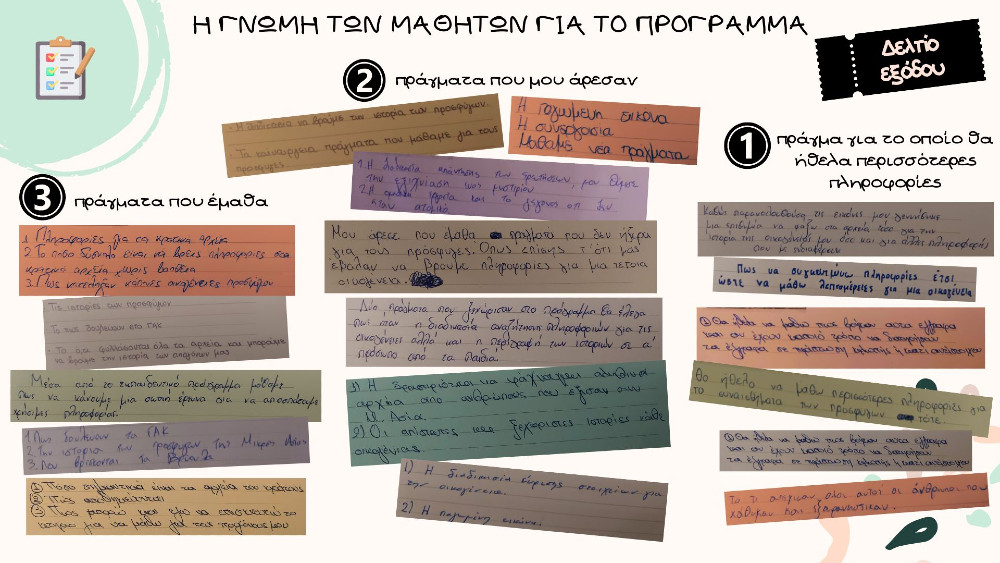 Η ΓΝΩΜΗ ΤΩΝ ΜΑΘΗΤΩΝ ΓΙΑ ΤΟ ΠΡΟΓΡΑΜΜΑ
Δελτίο
εξόδου
3 πράγματα που έμαθα
1 Πληροφορίες για τα κρατικά αρχεία
2. Το πόσο δύσκολο είναι να βρεις πληροφορίες στα
κρατικά αρχεία χωρίς βοήθεια
3. Πως κατέληξαν κάποιες οικογένειες προσφύγων
Τις ιστορίες των προσφύγων
Το πως δουλεύουν στα ΓΑΚ
Το ότι φυλάσσονται όλα τα αρχεία και μπορούμε
να βρούμε την ιστορία των προγόνων μας
Μέσα από το εκπαιδευτικό πρόγραμμα μάθαμε
πως να κάνουμε μια σωστή έρευνα για να αποσπάσουμε
χρήσιμες πληροφορίες.
1 Πως δουλεύουν τα ΓΑΚ
2 Την ιστορία των προσφύγων της Μικράς Ασίας
3. Που βρίσκονται τα
① Πόσο σημαντικά είναι τα αρχεία του κράτους
② Πώς αποθηκεύονται
③ Πως μπορώ και εγώ να επισκεπτώ το
κτήριο για να μάθω για τους προγόνους μου
2 πράγματα που μου άρεσαν
- Η διαδικασία να βρούμε την ιστορία των προσφύγων.
- Τα καινούργια πράγματα που μάθαμε για τους
πρόσφυγες
Η παγωμένη εικόνα
Η συνεργασία
Μάθαμε νέα πράγματα
1. Η διαδικασία απάντησης των ερωτήσεων, μου θύμισε
την εξιχνίαση ενός μυστηρίου
2. Η ομαδική εργασία και το γεγονός ότι δεν
ήταν ατομικό
Μου άρεσε που έμαθα πράγματα που δεν ήξερα
για τους πρόσφυγες. Όπως επίσης τ' ότι μας
έβαλαν να βρούμε πληροφορίες για μια τέτοια
οικογένεια.
Δύο πράγματα που ξεχώρισαν στο πρόγραμμα θα έλεγα
πως ήταν η διαδικασία αναζήτησης πληροφοριών για τις
οικογένειες αλλά και η περιγραφή των ιστοριών σε α'
πρόσωπο από τα παιδιά.
1) Η δραστηριότητα να ψάχναμε αληθινά
αρχεία από ανθρώπους που έζησαν στην
Μ. Ασία.
2) Οι απίστευτες και ξεχωριστές ιστορίες κάθε
οικογένειας.
1) Η διαδικασία εύρεσης στοιχείων για
την οικογένεια.
2) Η παγωμένη εικόνα.
1 πράγμα για το οποίο θα
ήθελα περισσότερες
πληροφορίες
Καθώς παρακολουθούσα τις εικόνες μου γεννήθηκε
μια επιθυμία να ψάξω στα αρχεία τόσο για την
ιστορία της οικογένειάς μου όσο και για άλλες πληροφορίες
που με ενδιαφέρουν
Πως να συγκεντρώνω πληροφορίες έτσι
ώστε να μάθω λεπτομέρειες για μια οικογένεια
① Θα ήθελα να μάθω πως βρήκαν αυτά τα έγγραφα
και αν έχουν κάποιο τρόπο να διατηρήσουν
τα έγγραφα σε περίπτωση
Θα ήθελα να μάθω περισσότερες πληροφορίες για
τα συναισθήματα των προσφύγων τότε.
① Θα ήθελα να μάθω πως βρήκαν αυτά τα έγγραφα
και αν έχουν κάποιο τρόπο να διατηρήσουν
τα έγγραφα σε περίπτωση
Το τι απέγιναν όλοι αυτοί οι άνθρωποι που
χάθηκαν και εξαφανίστηκαν.